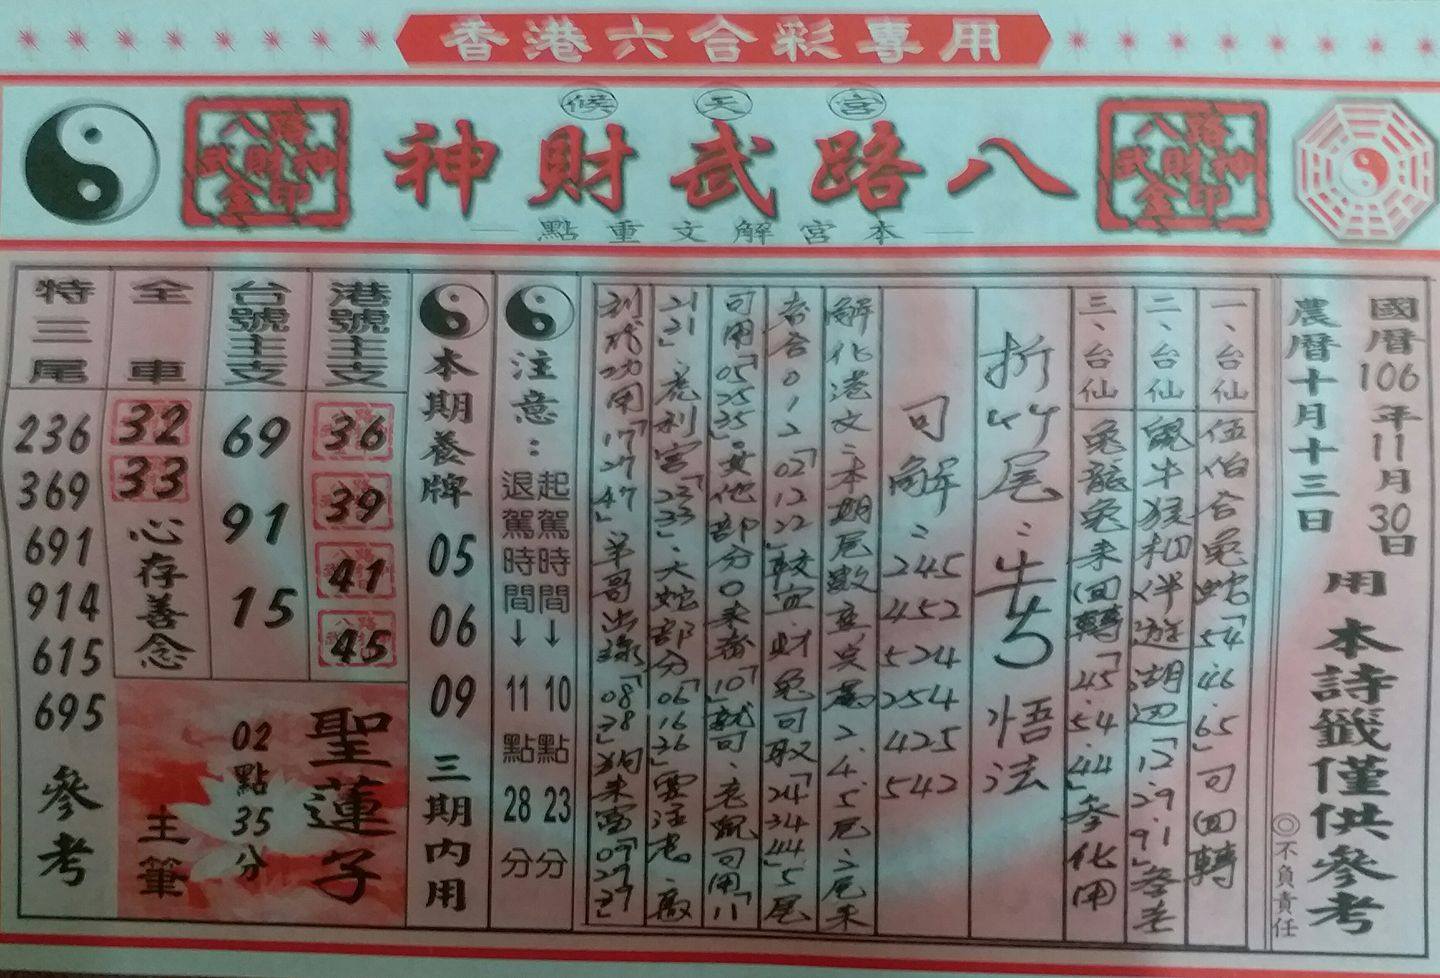 香港六合彩專用
候天宮
八路武財神
本宮解文重點
八路
武財神
金印
八路
武財神
金印
國曆106年11月30日
農曆十月十三日
用本詩籤僅供參考
◎不負責任
一、台仙
伍伯合兔蛇「54.46.65」可回轉
二、台仙
鼠牛猴相伴遊湖辺「12.29.91」參差
三、台仙
兔龍兔來回轉「45.54.44」參化用
折竹尾：
悟法
可解：245 452 524 254 425 542
解化港文：本期尾數主攻為2.4.5尾，2尾來
「02 12 22」較宜，財兔可取「24 34 44」5尾
可用「05 25 35」，其他部分0來看「10」就可，老鼠可用「11
21 31」，虎利宮「23 33」，大蛇部分「06 16 36」
「17 27 47」羊哥出「08 28」狗來「07 27 37」
注意：
起駕時間↓10點23分
退駕時間↓11點28分
本期養牌 05 06 09 三期內用
港號主支
36
39
41
45
台號主支
69
91
15
全車
32
33
心存善念
特三尾
236
369
691
914
615
695
參考
聖蓮子
02點35分
主筆